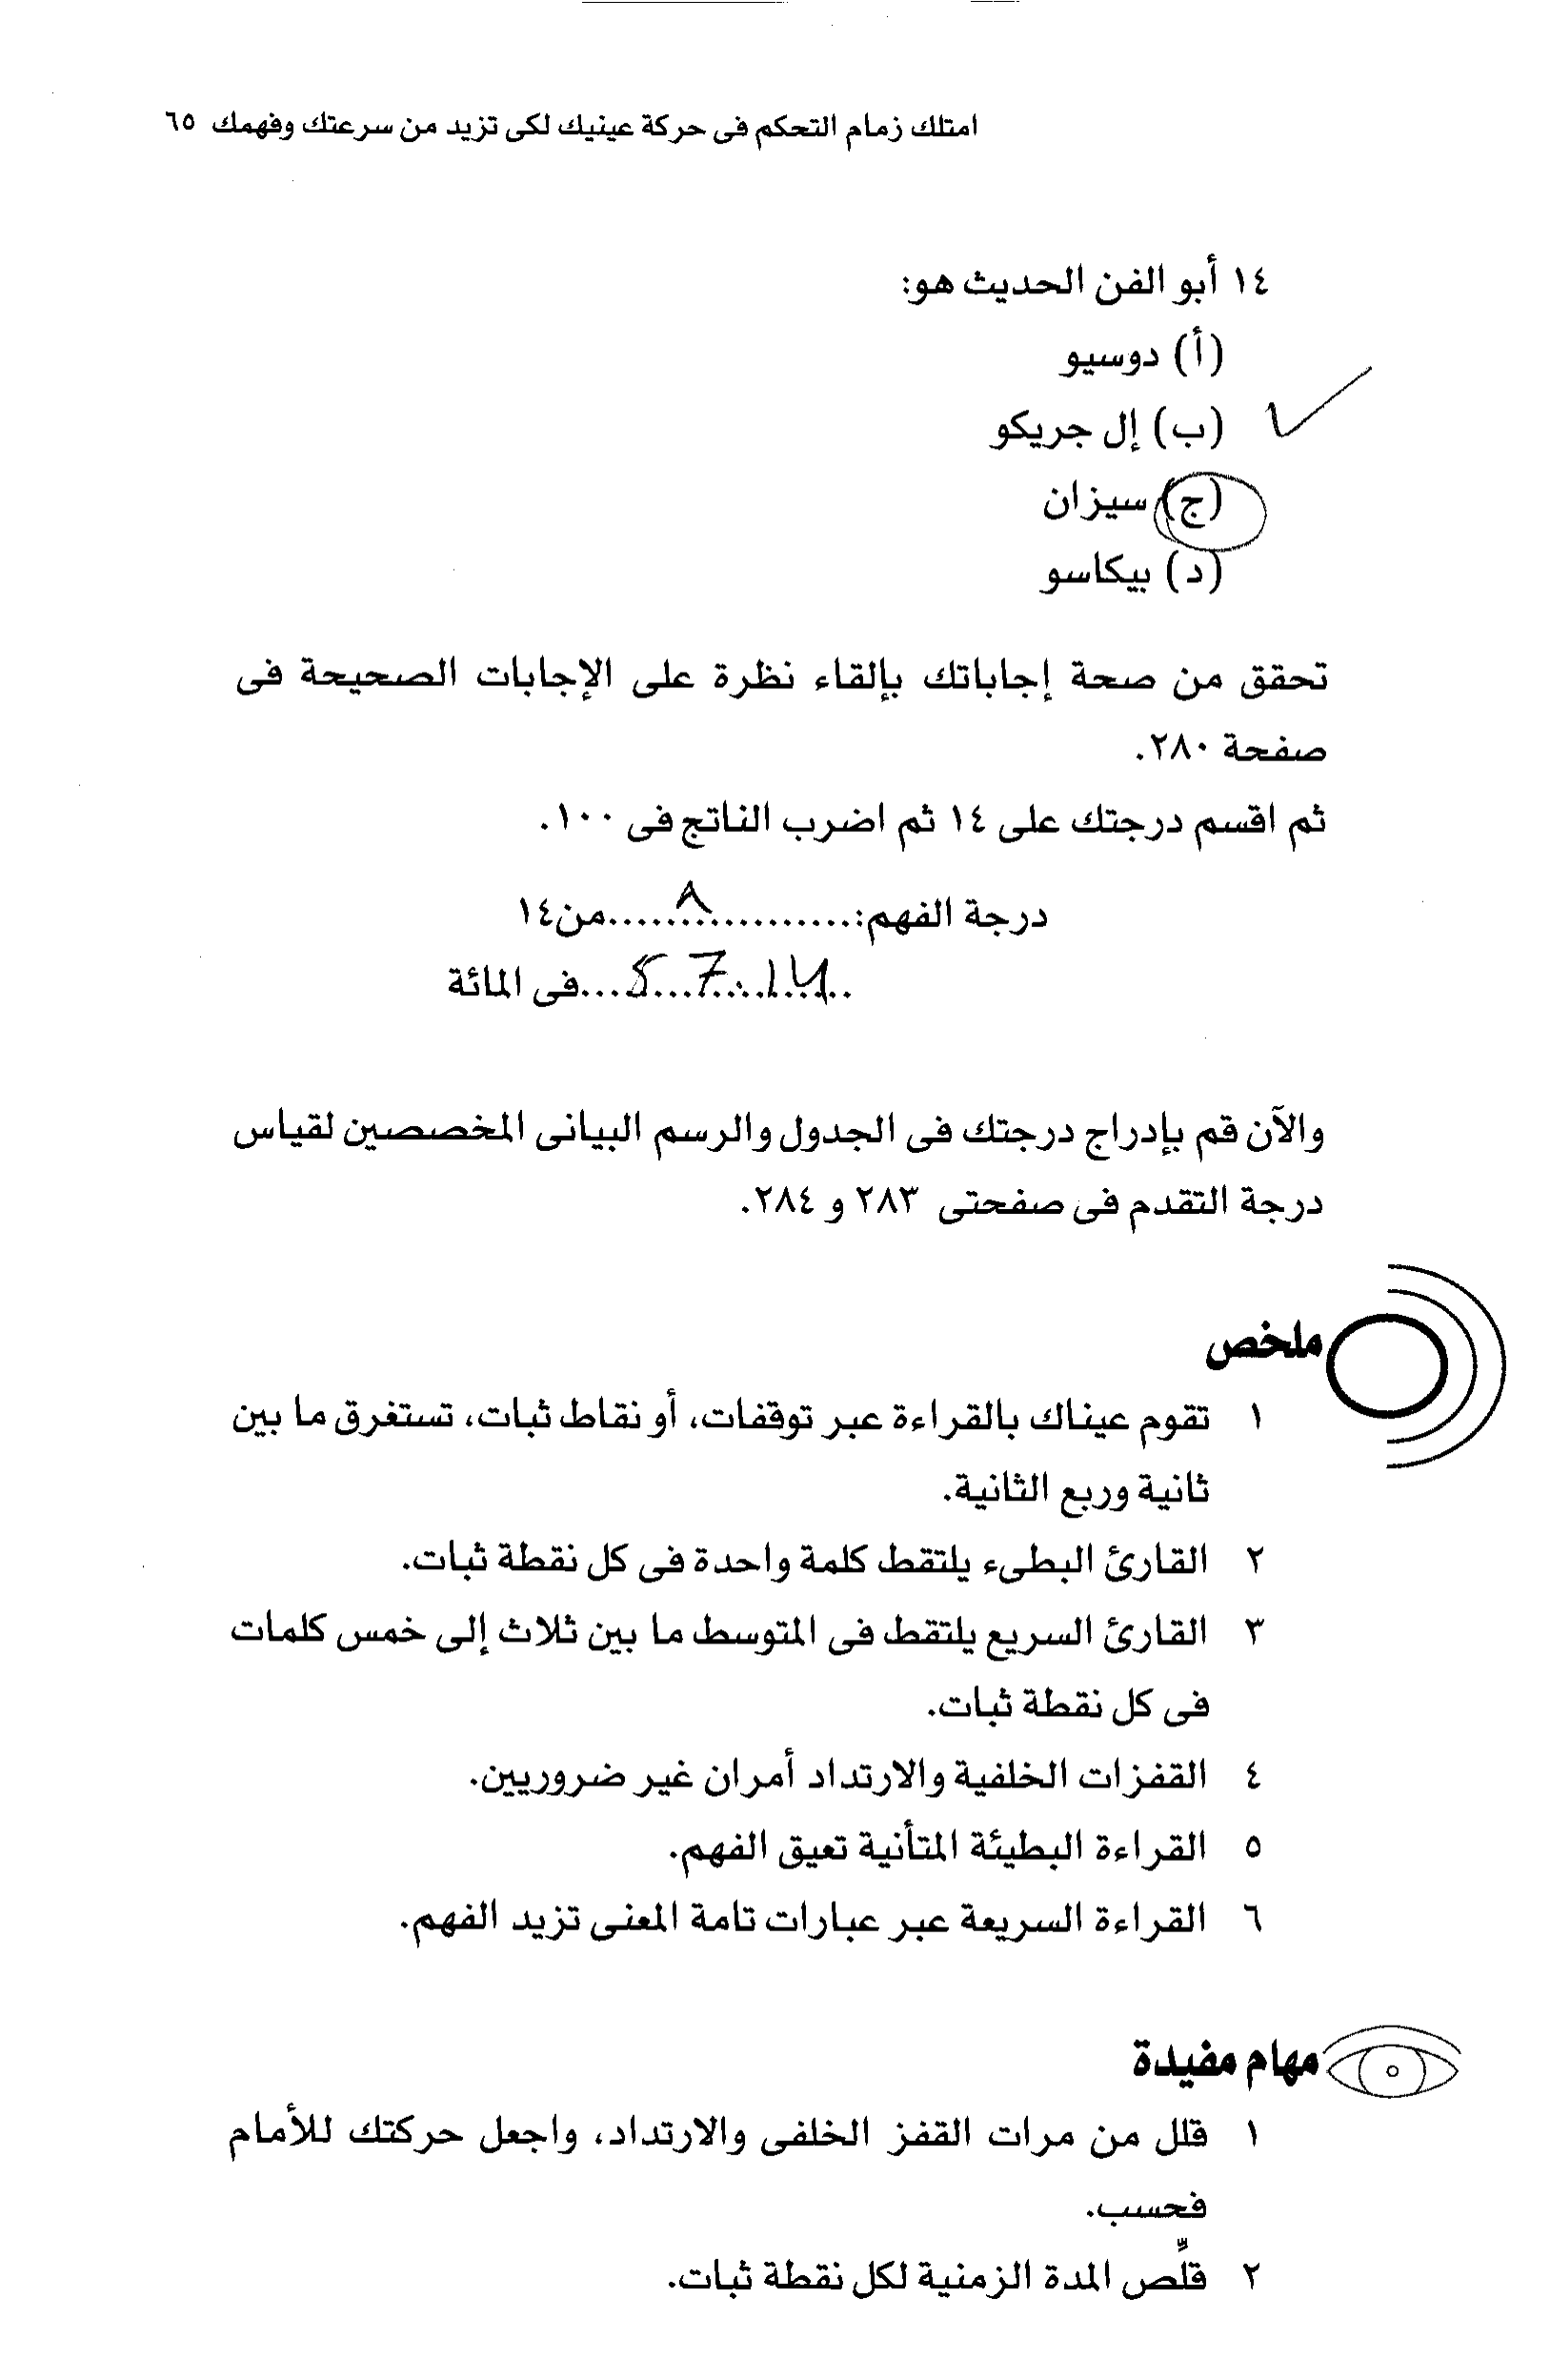 امتلك زمام التحكم فى حركة عينيك لكى تزيد من سرعتك وفهمك ٦٥
١٤ أبو الفن الحديث هو:
(أ) دوسيو
(ب) إل جريكو
(ج) سيزان
(د) بيكاسو
تحقق من صحة إجاباتك بإلقاء نظرة على الإجابات الصحيحة فى
صفحة ٢٨٠.
ثم اقسم درجتك على ١٤ ثم اضرب الناتج فى ١٠٠.
درجة الفهم:.................٨.......من١٤
57.14...فى المائة
والآن قم بإدراج درجتك فى الجدول والرسم البيانى المخصصين لقياس
درجة التقدم فى صفحتى ٢٨٣ و ٢٨٤.
ملخص
١ تقوم عيناك بالقراءة عبر توقفات، أو نقاط ثبات، تستغرق ما بين
ثانية وربع الثانية.
٢ القارئ البطىء يلتقط كلمة واحدة فى كل نقطة ثبات.
٣ القارئ السريع يلتقط فى المتوسط ما بين ثلاث إلى خمس كلمات
فى كل نقطة ثبات.
٤ القفزات الخلفية والارتداد أمران غير ضروريين.
٥ القراءة البطيئة المتأنية تعيق الفهم.
٦ القراءة السريعة عبر عبارات تامة المعنى تزيد الفهم.
مهام مفيدة
١ قلل من مرات القفز الخلفى والارتداد، واجعل حركتك للأمام
فحسب.
٢ قلِّص المدة الزمنية لكل نقطة ثبات.